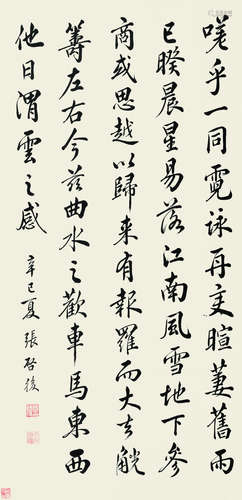 嗟乎一同霓詠再更暄萋舊雨
已暌晨星易落江南風雪地下參
商或思越以歸来有報羅而大去觥
籌左右今茲曲水之歡車馬東西
他日渭雲之感
辛巳夏張啓後